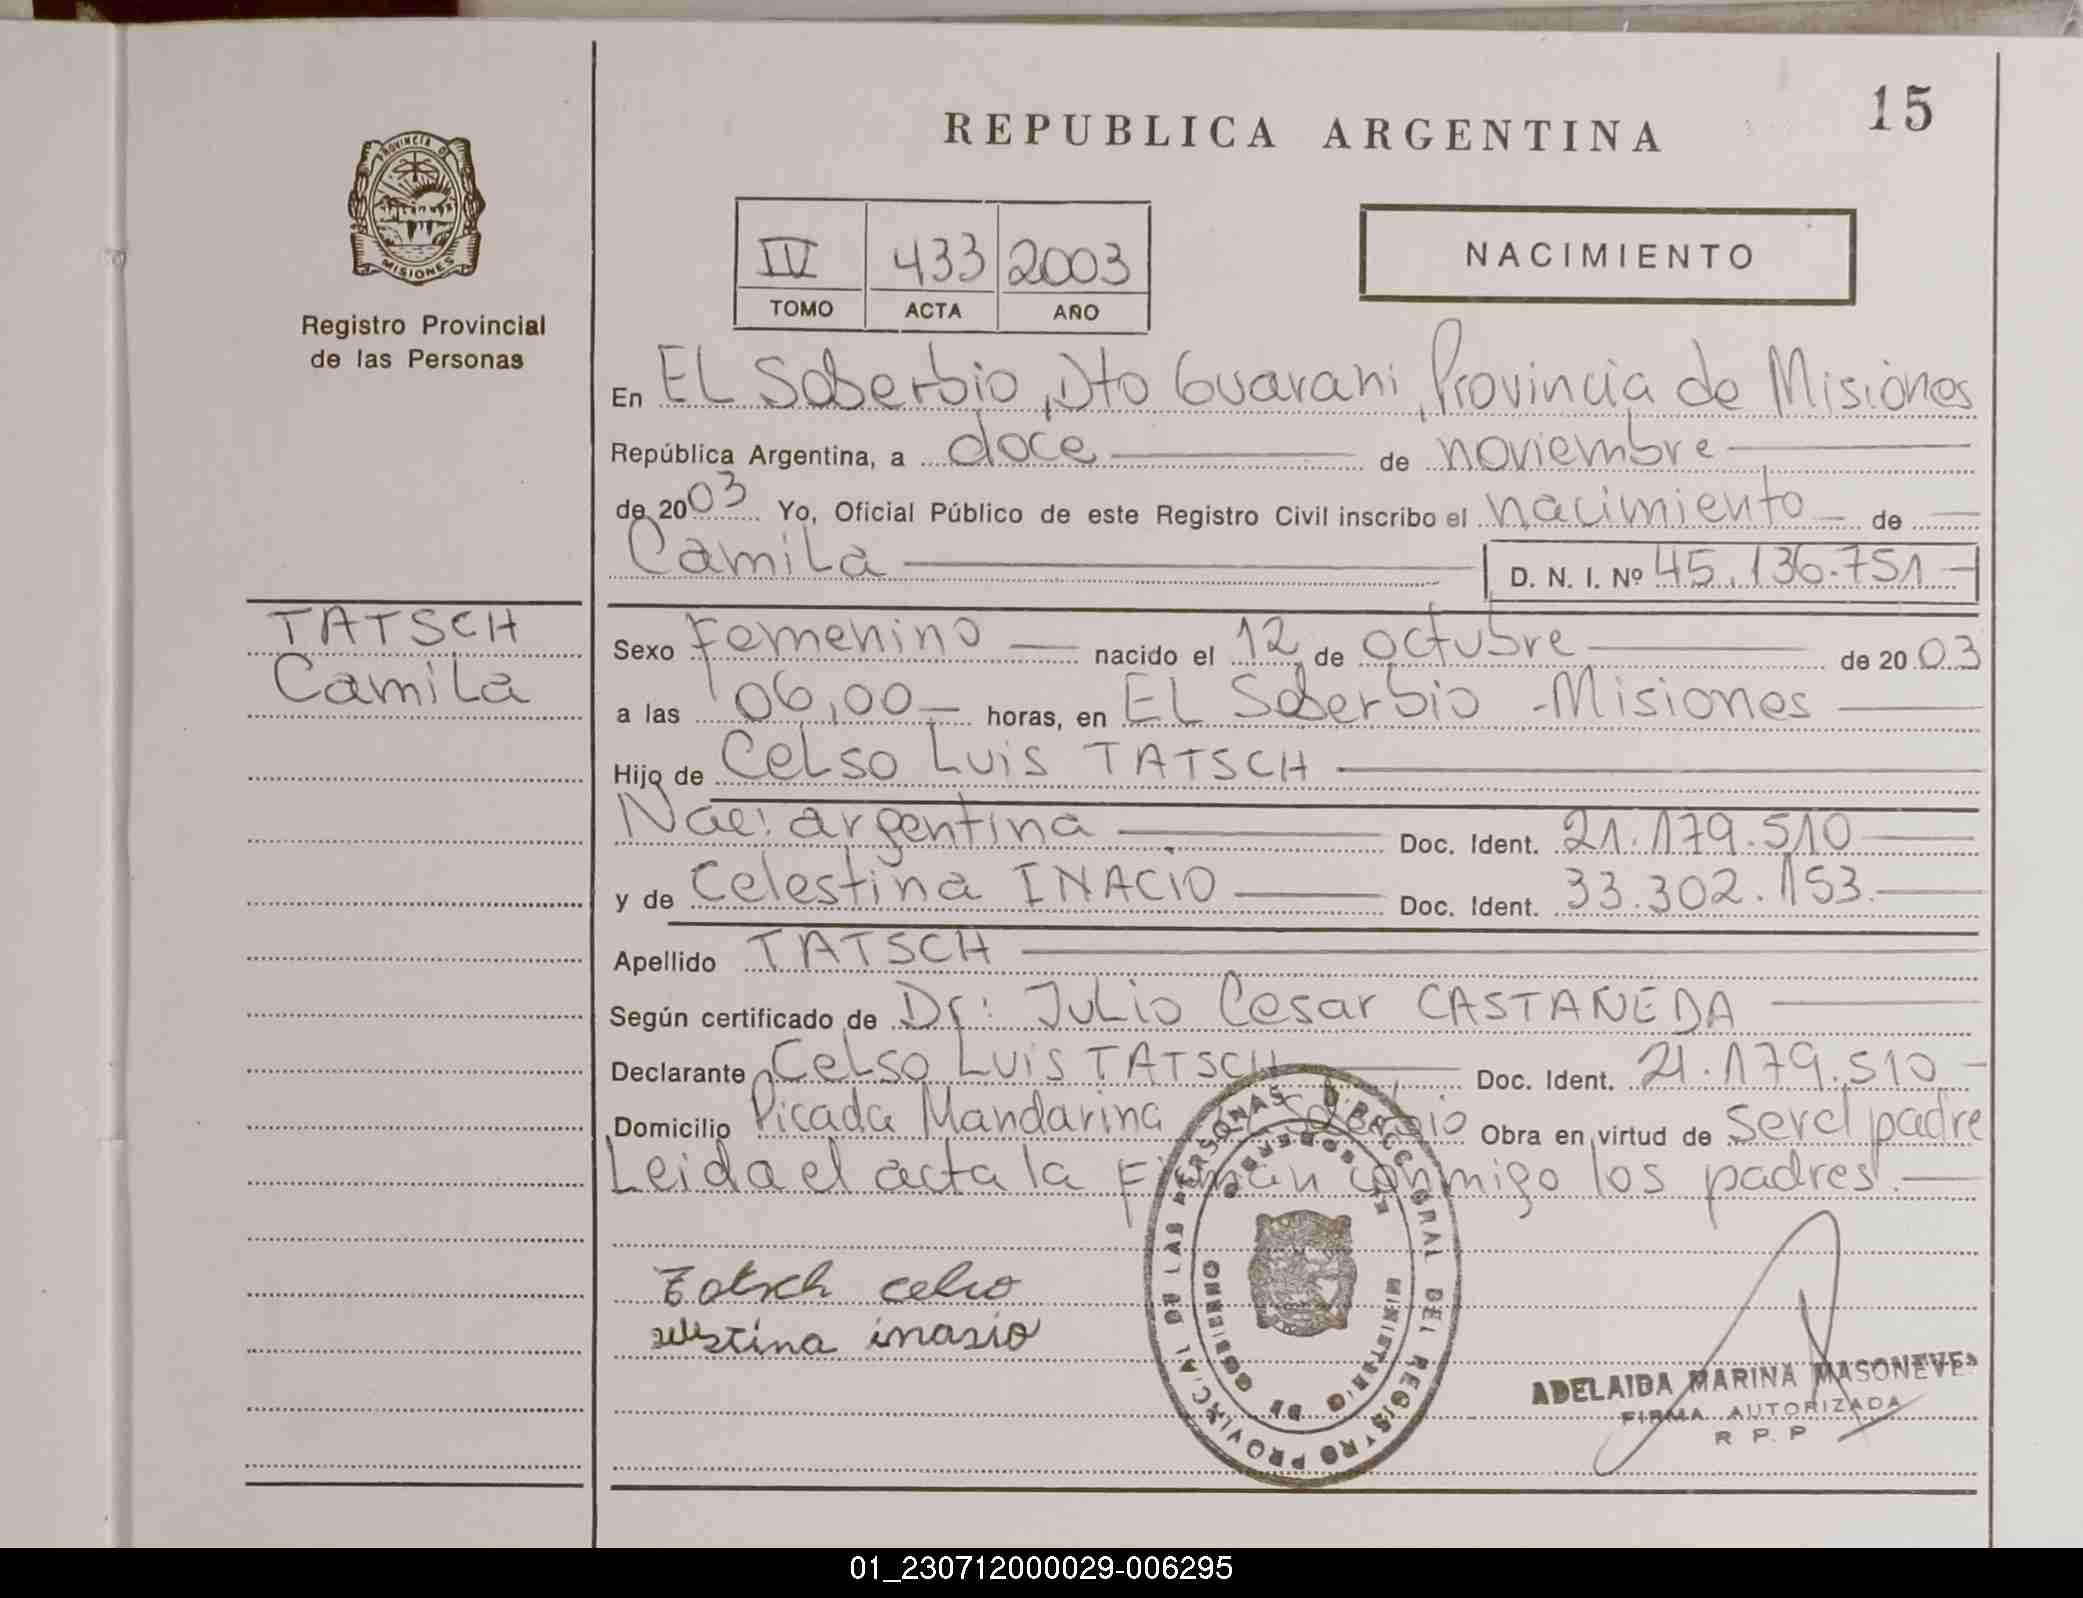 REPUBLICA ARGENTINA
15
PROVINCIA DE
MISIONES
Registro Provincial
de las Personas
IV 433 2003
TOMO ACTA AÑO
NACIMIENTO
En EL Soberbio, Dto Guarani, Provincia de Misiones
República Argentina, a doce de noviembre
de 2003 Yo, Oficial Público de este Registro Civil inscribo el nacimiento de
Camila D. N. I. Nº 45.136.751
TATSCH
Camila
Sexo Femenino nacido el 12 de octubre de 2003
a las 06,00 horas, en EL Soberbio - Misiones
Hijo de Celso Luis TATSCH
Nac: argentina Doc. Ident. 21.179.510
y de Celestina INACIO Doc. Ident. 33.302.153.
Apellido TATSCH
Según certificado de Dr: Julio Cesar CASTAÑEDA
Declarante Celso Luis TATSCH Doc. Ident. 21.179.510
Domicilio Picada Mandarina Soberbio Obra en virtud de ser el padre
Leida el acta la firman conmigo los padres.
Tatsch celso
selestina inasio
DIRECC. GRAL DEL REGISTRO PROVINCIAL DE LAS PERSONAS
MINISTERIO DE GOBIERNO
EL SOBERBIO
ADELAIDA MARINA MASONEVE
FIRMA AUTORIZADA
R P. P
01_230712000029-006295